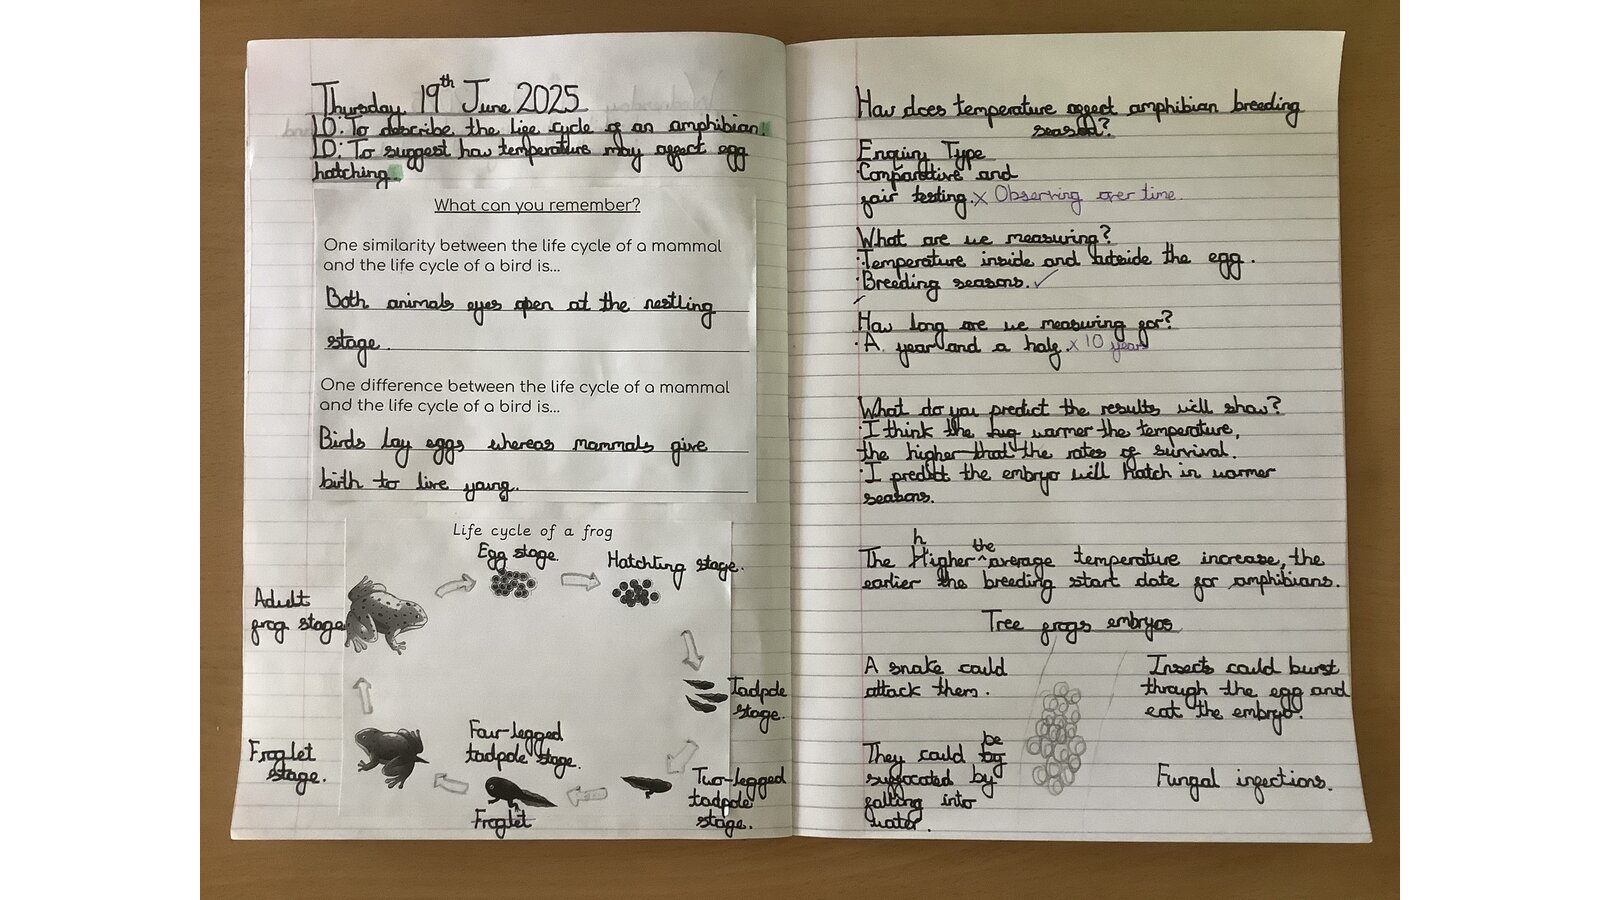 Thursday 19th June 2025
LO: To describe the life cycle of an amphibian.
LO: To suggest how temperature may affect egg
hatching.
What can you remember?
One similarity between the life cycle of a mammal
and the life cycle of a bird is...
Both animals eyes open at the nestling
stage.
One difference between the life cycle of a mammal
and the life cycle of a bird is...
Birds lay eggs whereas mammals give
birth to live young.
Life cycle of a frog
Egg stage.
Hatchling stage.
Tadpole
stage.
Two-legged
tadpole
stage.
Four-legged
tadpole stage.
Froglet
Froglet
stage.
Adult
frog stage
How does temperature affect amphibian breeding
season?
Enquiry Type
Comparitive and
fair testing. x Observing over time.
What are we measuring?
Temperature inside and outside the egg.
Breeding seasons. ✓
How long are we measuring for?
A year and a half. x 10 years
What do you predict the results will show?
I think the warmer the temperature,
the higher that the rates of survival.
I predict the embryo will hatch in warmer
seasons.
h the
The Higher ^ average temperature increase, the
earlier the breeding start date for amphibians.
Tree frogs embryos
A snake could
attack them.
Insects could burst
through the egg and
eat the embryo.
be
They could by
suffocated by
falling into
water.
Fungal infections.